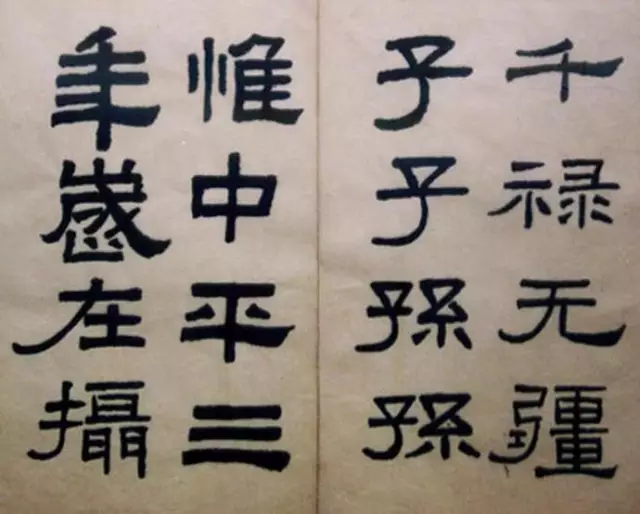 千禄无疆
子子孫孫
惟中平三
年歲在攝